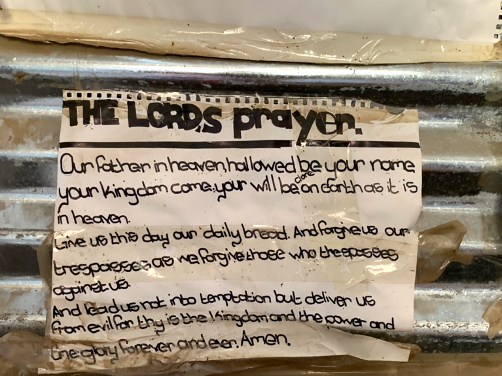 THE LORD,S prayer.
Our father in heaven hallowed be your name
your kingdom come, your will be done on earth as it is
in heaven.
Give us this day our daily bread. And forgive us our
trespasses as we forgive those who trespasses
against us.
And lead us not into temptation but deliver us
from evil for thy is the kingdom and the power and
the glory forever and ever. Amen.